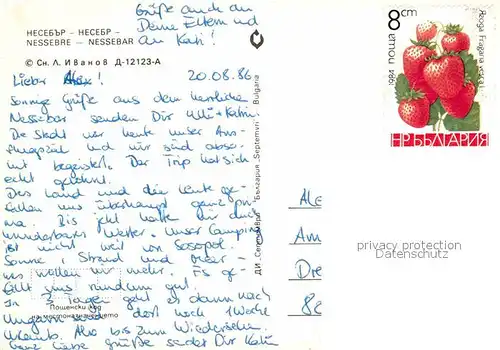 Grüße auch an
Deine Eltern und
an Kati!
НЕСЕБЪР - НЕСЕБР -
NESSEBRE - NESSEBAR
© Сн. Л. Иванов Д-12123-А
20.08.86
Lieber Alex!
Sonnige Grüße aus dem herrlichen
Nessebar senden Dir Ulli + Katrin.
Die Stadt war heute unser Aus-
flugsziel und wir sind abso-
lut begeistert. Der Trip hat sich
echt gelohnt.
Das Land und die Leute ge-
fallen uns überhaupt ganz pri-
ma. Bis jetzt hatten wir auch
wunderbares Wetter. Unser Camping
ist nicht weit von Sosopol.
Sonne, Strand und Meer -
was wollen wir mehr. Es ge-
fällt uns rundum gut.
In 3 Tagen geht es dann nach
Ungarn und dort noch 1 Woche
Urlaub. Also bis zum Wiedersehen.
Ganz liebe Grüße sendet Dir Katrin
Пощенски код
на местоназначението
ДИ „Септември" България „Septemvri" Bulgaria
8 cm
ПОЩА 1984
НР БЪЛГАРИЯ
Ale
Am
Dre
80
privacy protection
Datenschutz